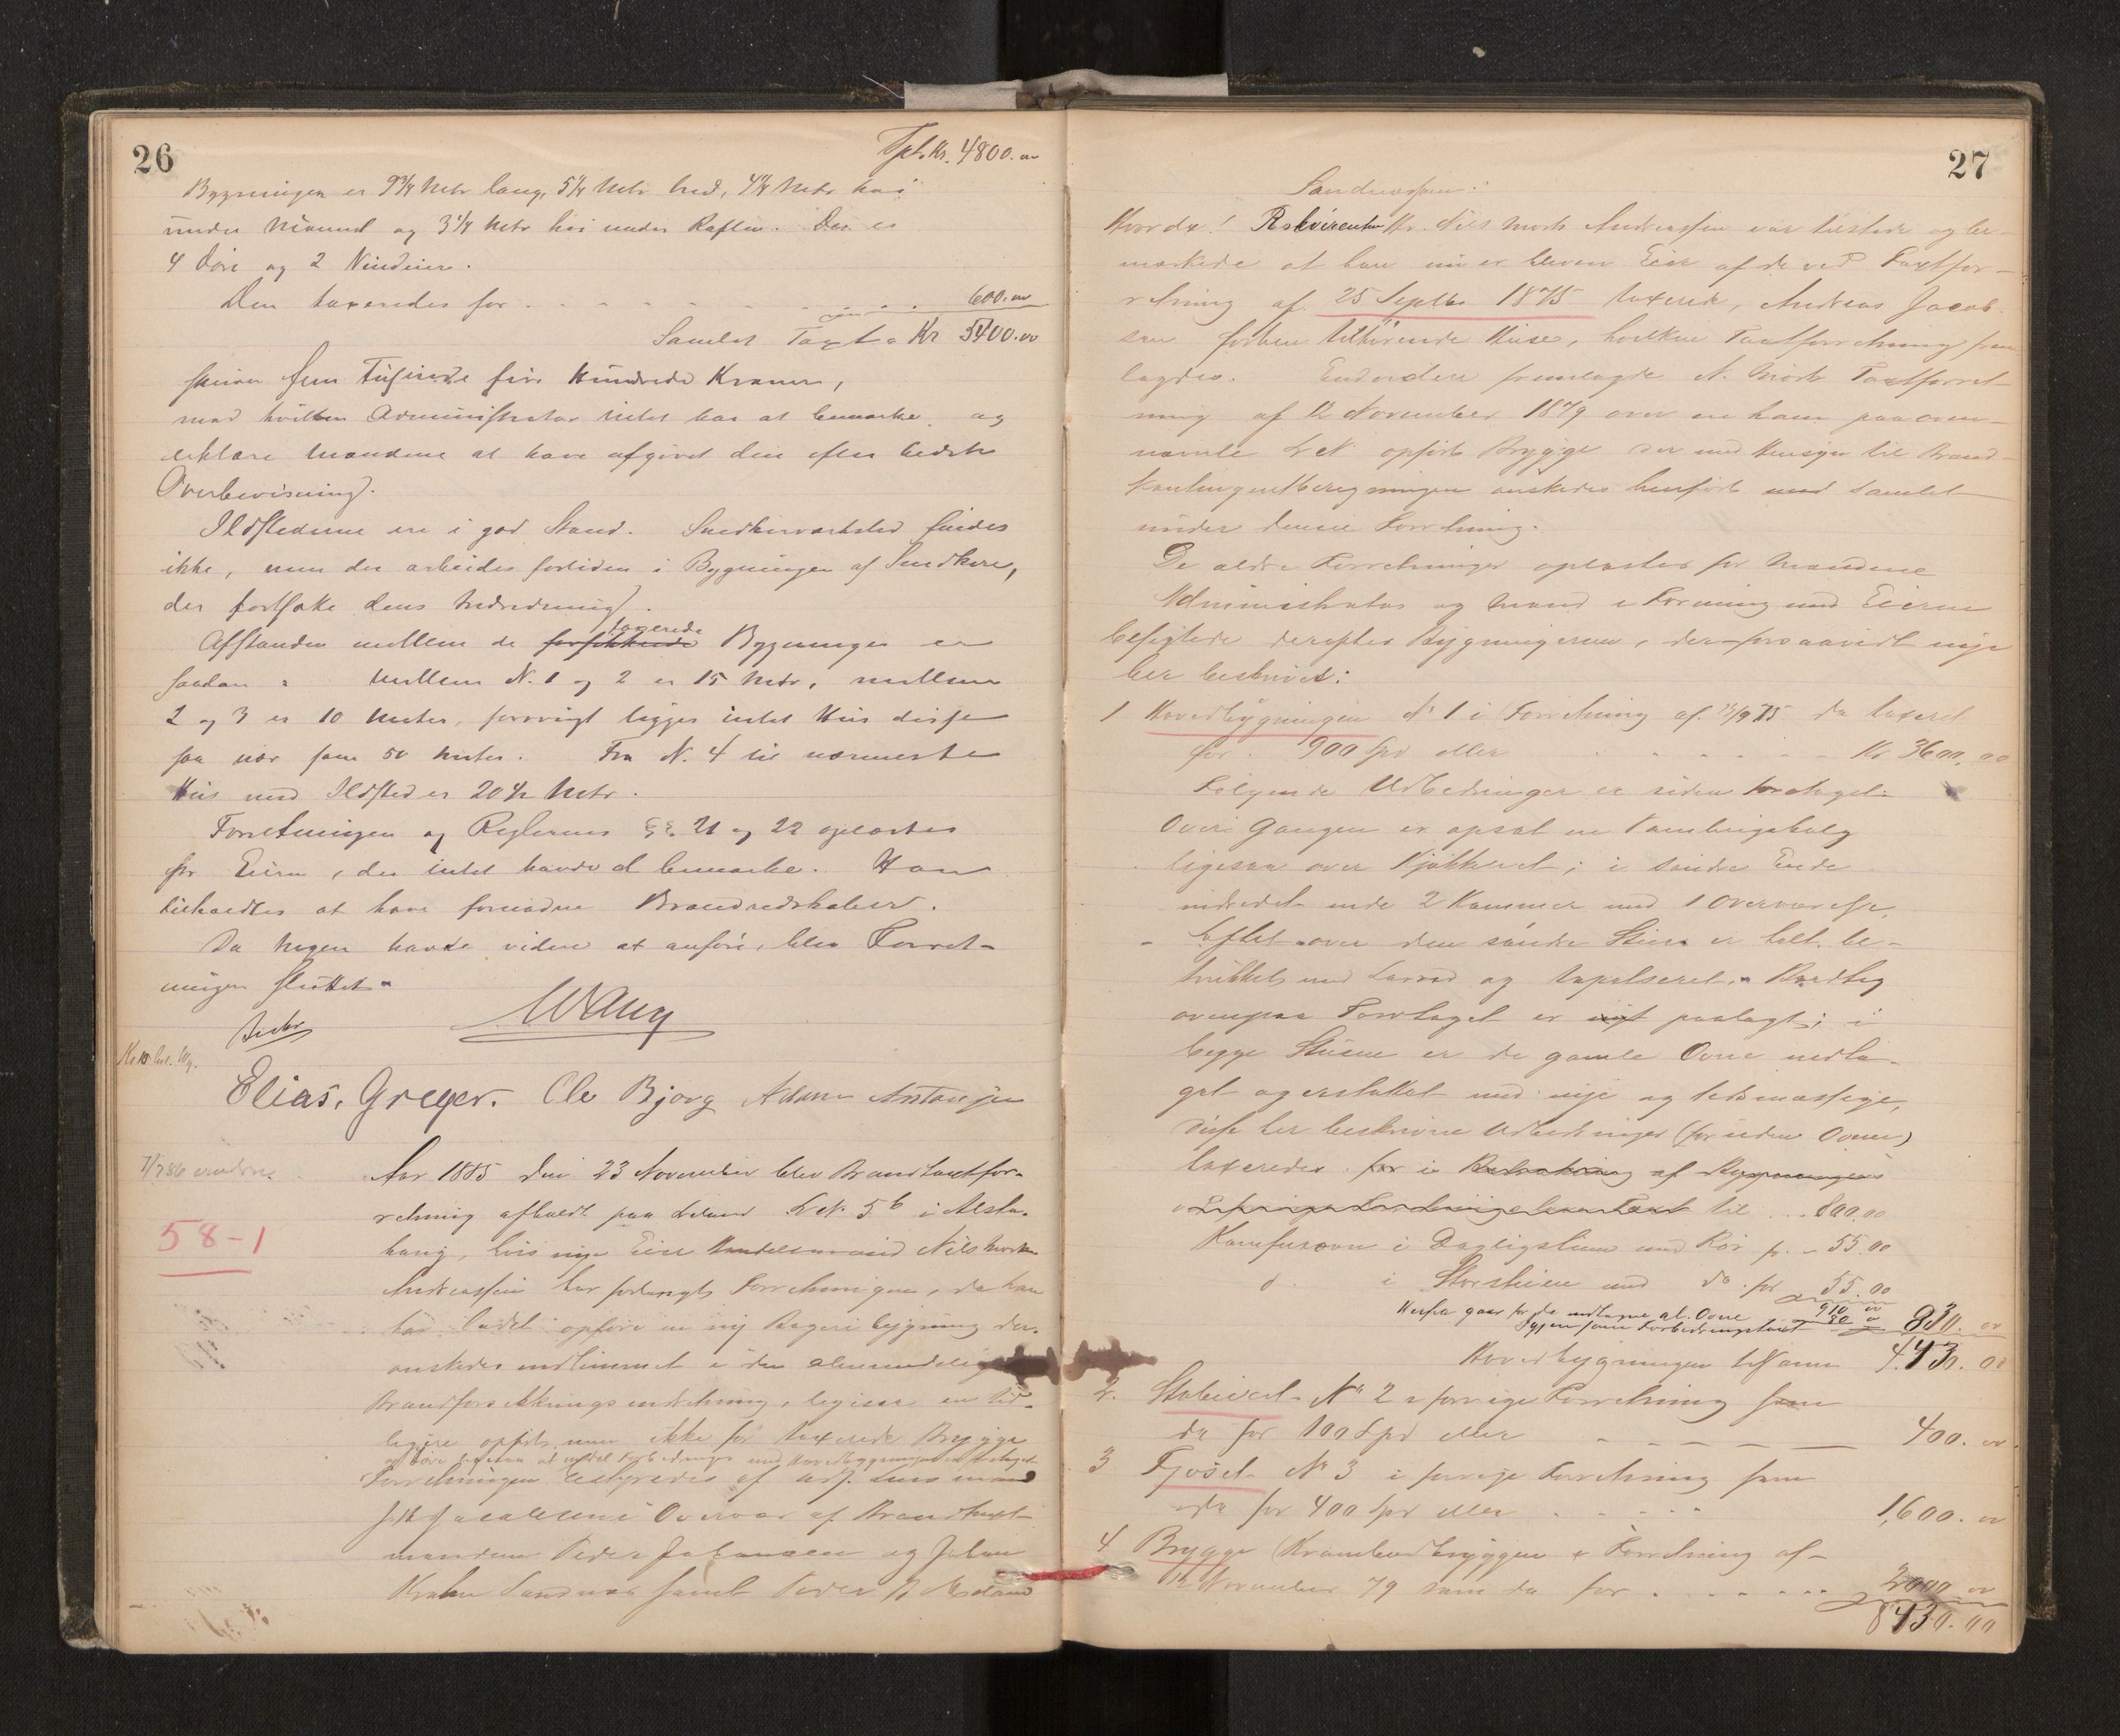 26
Tpt. Kr. 4800.00
Bygningen er 9 3/4 Metr lang, 5 1/4 Metr bred, 4 1/4 Metr høi
under Mønnet og 3 1/4 Metr høi under Raften. Der er
4 Døre og 2 Vinduer.
Den taxeredes for . . . 600.00
Samlet Taxt = Kr 5400.00
skriver fem Tusinde fire Hundrede Kroner,
mod hvilken Administrator intet har at bemærke og
erklære Mændene at have afgivet den efter bedste
Overbevisning.
Ildstederne ere i god Stand. Snedkerværksted findes
ikke, men der arbeides fortiden i Bygningen af Snedkere,
der fortsætte dens Indredning.
taxerede
Afstanden mellem de forsikkrede Bygninger er
saadan: Mellem N. 1 og 2 er 15 Metr, mellem
2 og 3 er 10 Meter, forøvrigt ligger intet Hus disse
saa nær som 50 Meter. Fra N. 4 til nærmeste
Hus med Ildsted er 20 1/2 Metr.
Forretningen og Reglernes §§. 21 og 22 oplæstes
for Eieren, der intet havde at bemærke. Han
tilholdtes at have fornødne Brandredskaber.
Da Ingen havde videre at anføre, blev Forret-
ningen sluttet.
Wang
Elias. Greger. Ole Bjorg Adam Antonsen
Aar 1885 den 23 November blev Brandtaxtfor-
retning afholdt paa LNr. 5b i Alsta-
58-1
haug, hvis nye Eier Handelsmand Nils Mork
Andreassen har forlangt Forretningen, da han
har ladet opføre en ny Bageribygning der
ønskedes indlemmet i den almindelige
Brandforsikkringsindretning, ligesaa en tid-
ligere opført, men ikke før taxerede Brygge
Forretningen bestyredes af
J K Jacobsen i Overvær af Brandtaxt-
mændene Peder Johansen og Johan
Krahn Sandnes samt Peder
27
Sandnessøen.
Hvorda! Rekvirenten Hr. Nils Mork Andreassen var tilstede og be-
mærkede at han nu er bleven Eier af de ved Taxtfor-
retning af 25 Septbr 1875 taxerede, Andreas Jacob-
sen forhen tilhørende Huse, hvilken Taxtforretning frem-
lagdes. Endvidere fremlagde N. Mork Taxtforret-
ning af 12 November 1879 over en ham paa oven-
nævnte LNr. opført Brygge der med Hensyn til Brand-
kontingentberegningen ønskedes henført med samlet
under denne Forretning.
De ældre Forretninger oplæstes for Mændene
Administrator og Mænd i Forening med Eieren
besigtede derefter Bygningerne, der forsaavidt nye
her beskrives:
1 Hovedbygningen No 1 i Forretning af 25/9 75 da taxeret
for 900 Spd eller . . . Kr 3600.00
Følgende Udbedringer er siden foretaget:
Over Gangen er opsat en
ligesaa over Kjøkkenet; i søndre Ende
indredet 2 Kammer med 1
Loftet over den søndre Stue er helt be-
trukket med Lærred og tapetseret.
ovenpaa Torvtaget er nyt paalagt; i
begge Stuene er de gamle Ovne nedta-
get og erstattet med nye og
disse her beskrevne Udbedringer (foruden Ovne)
taxeredes for i af Bygningens
til . . . 800.00
Kamfurovn i Dagligstuen med Rør for - 55.00
d. i Storstuen med do. for 55.00
910 00
Herfra gaar for de nedtagne gl. Ovne 80 00
Igjen som Forbedringstaxt 830.00
Hovedbygningen tilsammen 4.430.00
2. Staburet No 2 i forrige Forretning som
da for 100 Spd eller - - - - - 400.00
3 Fjøset No 3 i forrige Forretning som
da for 400 Spd eller . . . . 1,600.00
4 Brygge (Krambodbryggen i Forretning af
12 November 79 som da for . . . . . . 2000.00
8430.00